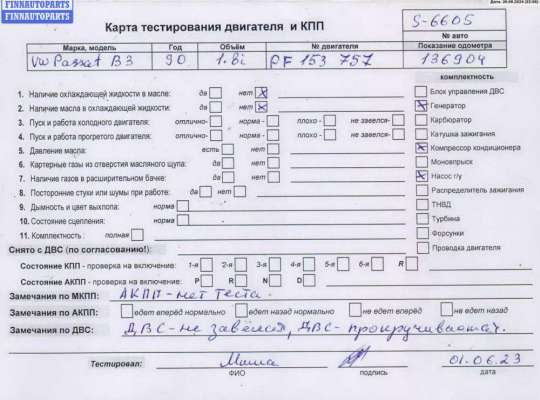 FINNAUTOPARTS
FINNAUTOPARTS
Карта тестирования двигателя и КПП
S-6605
№ авто
Марка, модель Год Объём № двигателя Показание одометра
VW Passat B3 90 1.8i PF 153 757 136904
комплектность
1. Наличие охлаждающей жидкости в масле: да нет X
2. Наличие масла в охлаждающей жидкости: да нет X
3. Пуск и работа холодного двигателя: отлично- норма - плохо - не завелся-
4. Пуск и работа прогретого двигателя: отлично- норма - плохо - не завелся-
5. Давление масла: есть нет
6. Картерные газы из отверстия масляного щупа: да нет
7. Наличие газов в расширительном бачке: да нет
8. Посторонние стуки или шумы при работе: да нет
9. Дымность и цвет выхлопа: норма
10. Состояние сцепления: норма
11. Комплектность полная
Блок управления ДВС
X Генератор
Карбюратор
Катушка зажигания
X Компрессор кондиционера
Моновпрыск
X Насос г/у
Распределитель зажигания
ТНВД
Турбина
Форсунки
Проводка двигателя
Снято с ДВС (по согласованию!):
Состояние КПП - проверка на включение: 1-я 2-я 3-я 4-я 5-я 6-я R
Состояние АКПП - проверка на включение: P R N D
Замечания по МКПП: АКПП-нет теста.
Замечания по АКПП: едет вперёд нормально едет назад нормально не едет вперёд не едет назад
Замечания по ДВС: ДВС-не завёлся, ДВС-прокручивается.
Тестировал: Миша 01.06.23
ФИО подпись дата